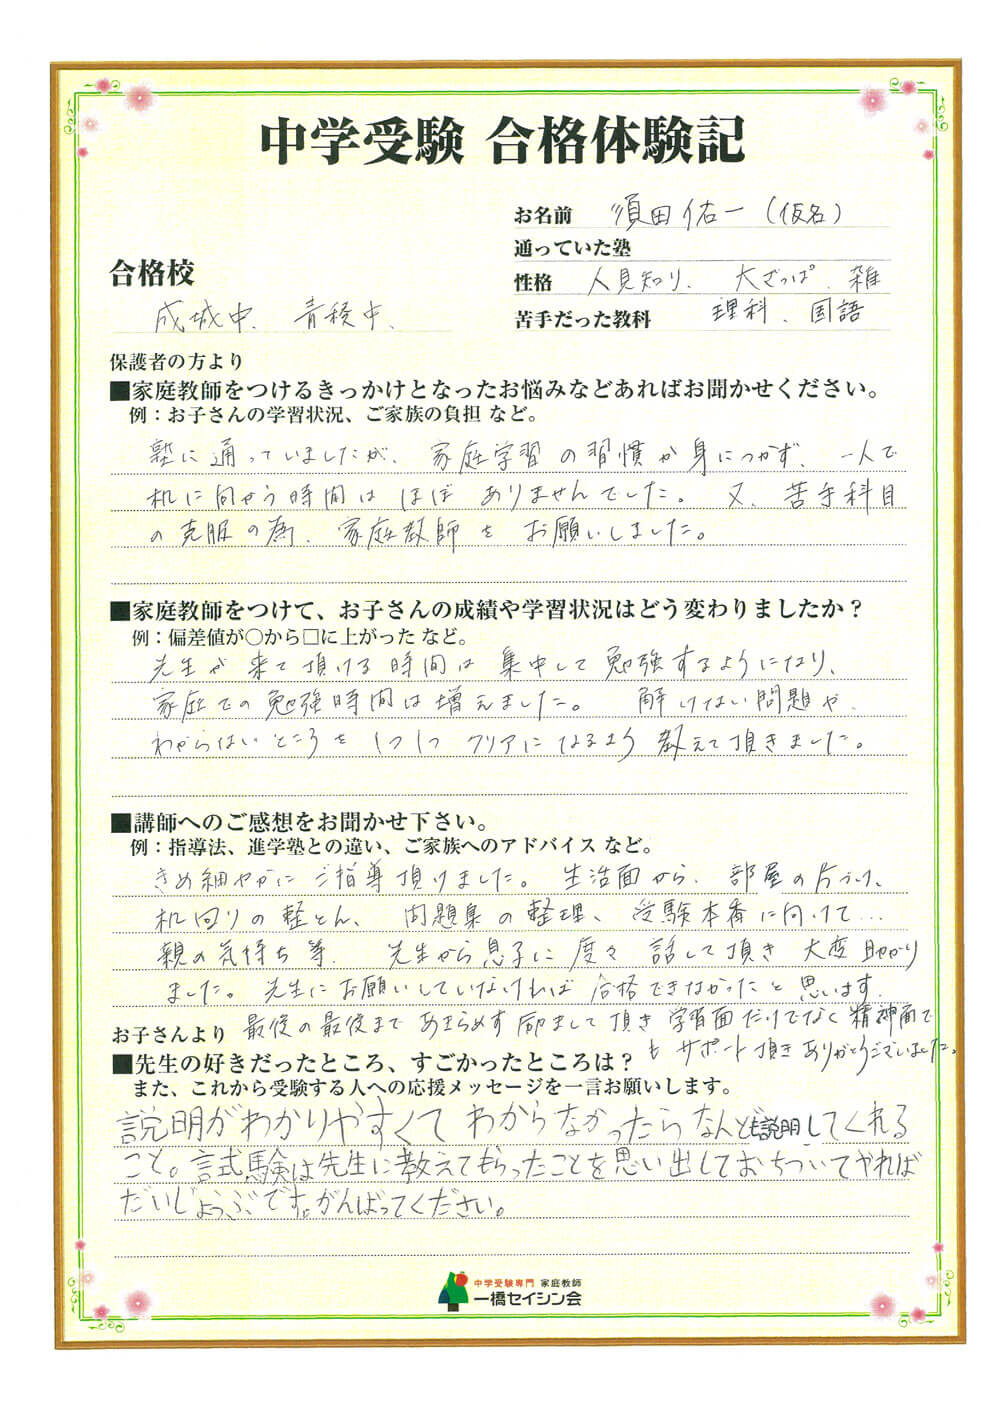 中学受験 合格体験記
お名前 須田佑一（仮名）
通っていた塾
合格校
性格 人見知り、大ざっぱ、雑
成城中、青稜中、
苦手だった教科 理科、国語
保護者の方より
■家庭教師をつけるきっかけとなったお悩みなどあればお聞かせください。
例：お子さんの学習状況、ご家族の負担 など。
塾に通っていましたが、家庭学習の習慣が身につかず、一人で
机に向かう時間はほぼありませんでした。又、苦手科目
の克服の為、家庭教師をお願いしました。
■家庭教師をつけて、お子さんの成績や学習状況はどう変わりましたか？
例：偏差値が○から□に上がった など。
先生が来て頂ける時間は集中して勉強するようになり、
家庭での勉強時間は増えました。解けない問題や、
わからないところを1つ1つクリアになるよう教えて頂きました。
■講師へのご感想をお聞かせ下さい。
例：指導法、進学塾との違い、ご家族へのアドバイス など。
きめ細やかにご指導頂けました。生活面から、部屋の片づけ、
机回りの整とん、問題集の整理、受験本番に向けて…
親の気持ち等、先生から息子に度々話して頂き大変助かり
ました。先生にお願いしていなければ合格できなかったと思います。
最後の最後まであきらめず励まして頂き学習面だけでなく精神面で
もサポート頂きありがとうございました。
お子さんより
■先生の好きだったところ、すごかったところは？
また、これから受験する人への応援メッセージを一言お願いします。
説明がわかりやすくてわからなかったらなんども説明してくれる
こと。試験は先生に教えてもらったことを思い出しておちついてやれば
だいじょうぶです。がんばってください。
中学受験専門 家庭教師
一橋セイシン会